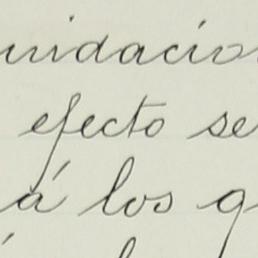 uidacion
efecto se
á los q